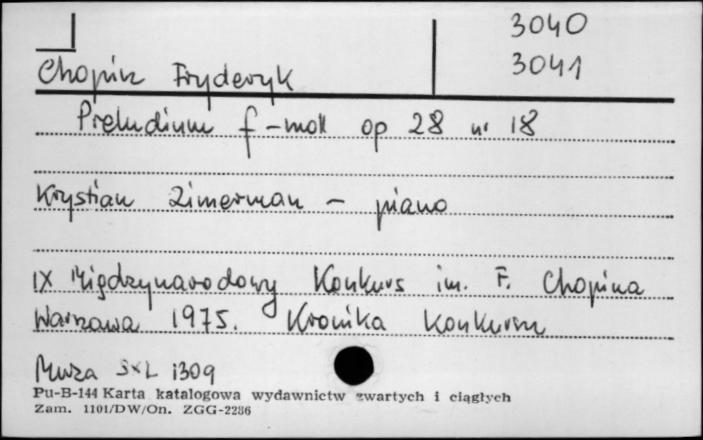 3040
3041
Chopin Fryderyk
Preludium f-moll op 28 nr 18
Krystian Zimerman - piano
IX Międzynarodowy Konkurs im. F. Chopina
Warszawa 1975. Kronika Konkursu
Muza SXL 1309
Pu-B-144 Karta katalogowa wydawnictw zwartych i ciągłych
Zam. 1101/DW/On. ZGG-2236